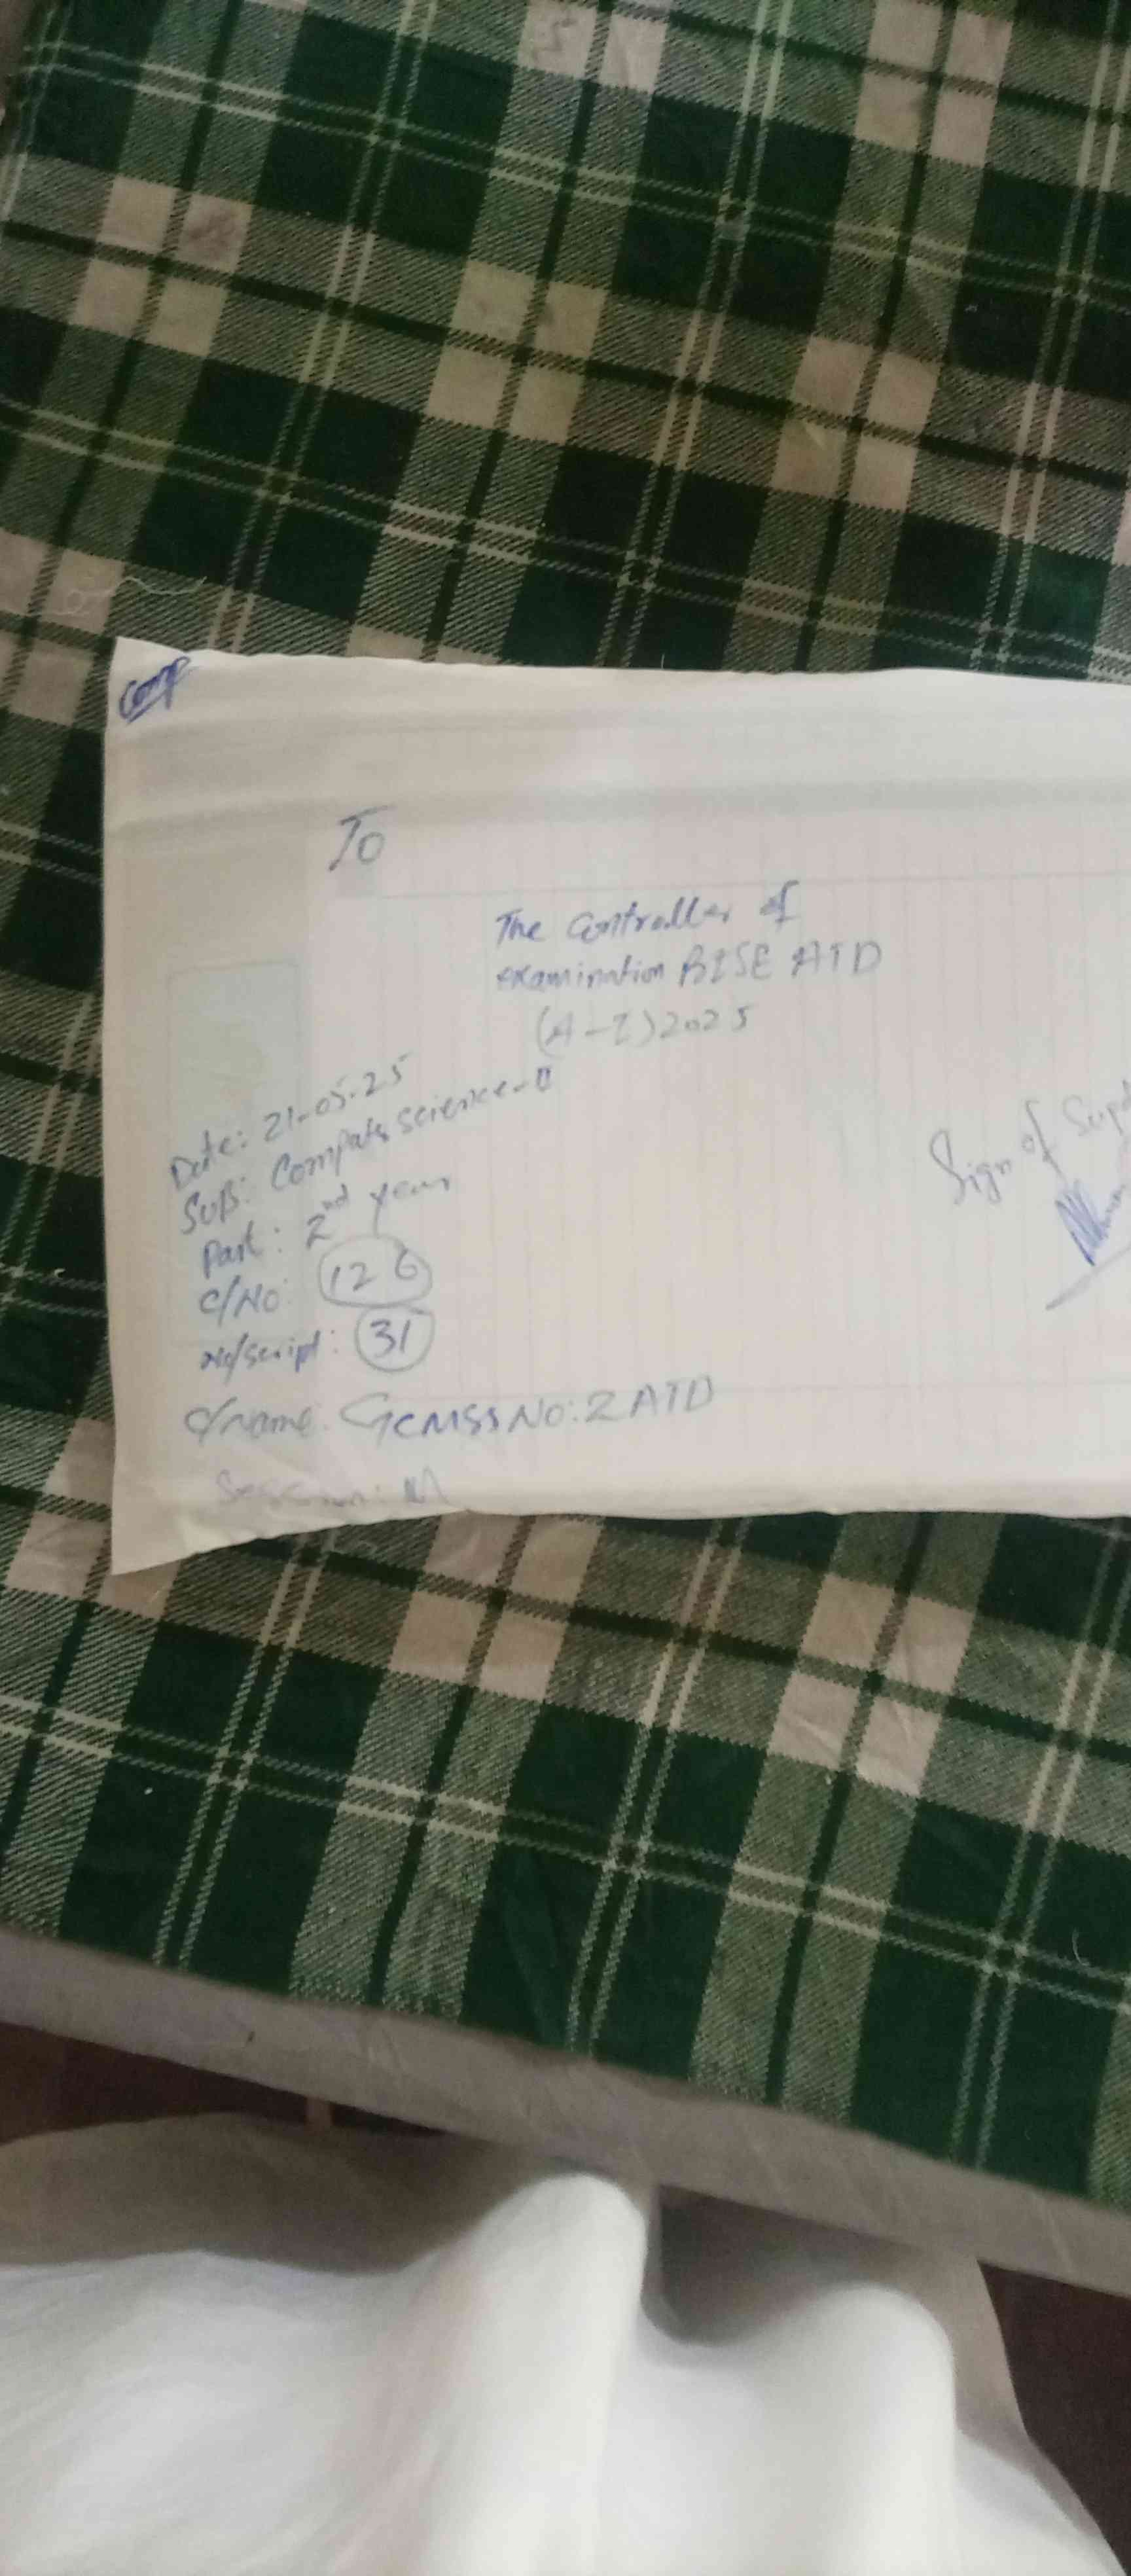 Comp
To
The Controller of
examination BISE ATD
(A-I) 2025
Date: 21-05-25
Sub: Computer science-II
Part: 2nd year
C/No: 126
No/script: 31
C/name: GCMSS No: 2 ATD
Session: M
Sign of Supd